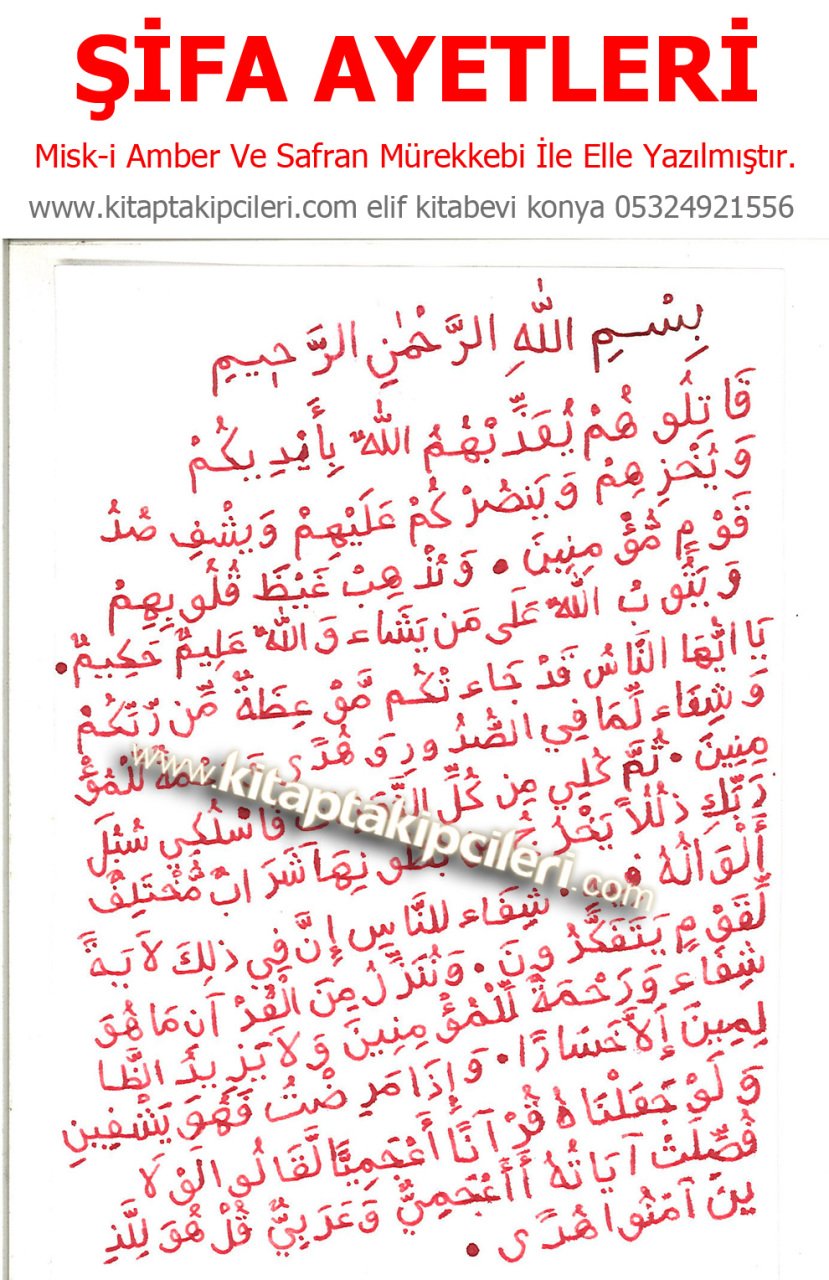 ŞİFA AYETLERİ
Misk-i Amber Ve Safran Mürekkebi İle Elle Yazılmıştır.
www.kitaptakipcileri.com elif kitabevi konya 05324921556
بِسْمِ اللّٰهِ الرَّحْمٰنِ الرَّحِيمِ
قَاتِلُو هُمْ يُعَذِّبْهُمُ اللّٰهُ بِأَيْدِيكُمْ
وَيُخْزِهِمْ وَيَنصُرْكُمْ عَلَيْهِمْ وَيَشْفِ صُدُ
قَوْمٍ مُّؤْمِنِينَ . وَيُذْهِبْ غَيْظَ قُلُوبِهِمْ
وَيَتُوبُ اللّٰهُ عَلَى مَن يَشَاء وَاللّٰهُ عَلِيمٌ حَكِيمٌ .
يَا اَيُّهَا النَّاسُ قَدْ جَاءتْكُم مَّوْعِظَةٌ مِّن رَّبِّكُمْ
وَشِفَاء لِّمَا فِي الصُّدُورِ وَهُدًى لِّلْمُؤْ
مِنِينَ . ثُمَّ كُلِي مِن كُلِّ فَاسْلُكِي سُبُلَ
رَبِّكِ ذُلُلاً يَخْرُجُ بُطُونِهَا شَرَابٌ مُّخْتَلِفٌ
أَلْوَانُهُ شِفَاء لِلنَّاسِ إِنَّ فِي ذٰلِكَ لَآيَةً
لِّقَوْمٍ يَتَفَكَّرُونَ . وَنُنَزِّلُ مِنَ الْقُرْآنِ مَا هُوَ
شِفَاء وَرَحْمَةٌ لِّلْمُؤْمِنِينَ وَلاَ يَزِيدُ الظَّا
لِمِينَ إَلاَّ خَسَارًا . وَإِذَا مَرِضْتُ فَهُوَ يَشْفِينِ
وَلَوْ جَعَلْنَاهُ قُرْآنًا أَعْجَمِيًّا لَّقَالُوا لَوْ لَا
فُصِّلَتْ آيَاتُهُ أَأَعْجَمِيٌّ وَعَرَبِيٌّ قُلْ هُوَ لِلَّذِ
ينَ آمَنُوا هُدًى .
www.kitaptakipcileri.com